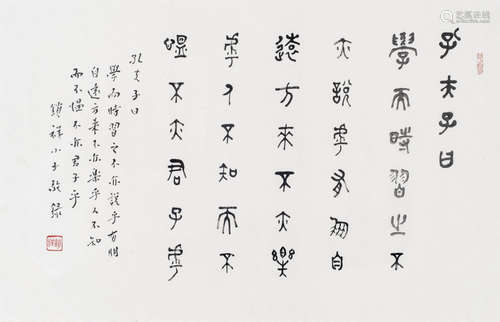 孔夫子曰
學而時習之不
亦說乎有朋自
遠方來不亦樂
乎人不知而不
慍不亦君子乎
孔夫子曰
學而時習之不亦說乎有朋
自遠方來不亦樂乎人不知
而不慍不亦君子乎
祥小敬錄